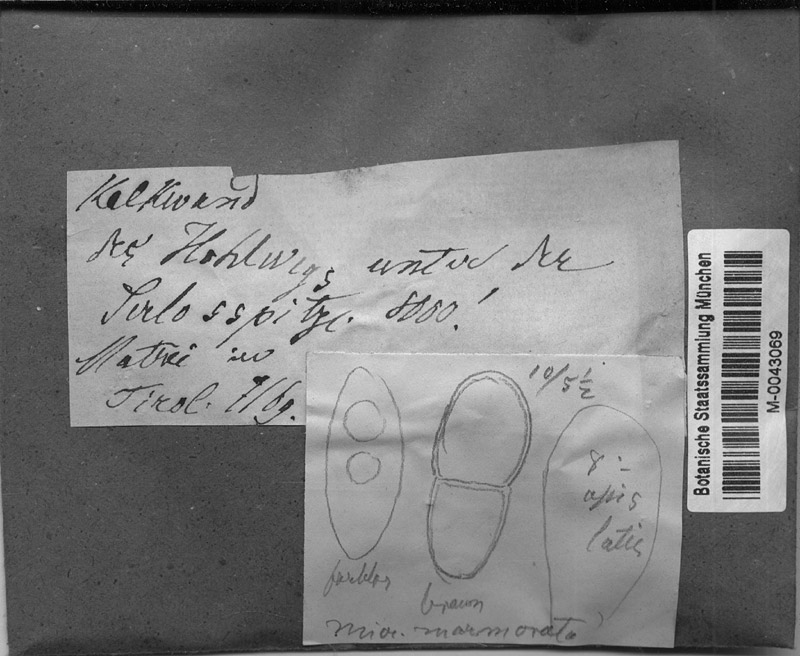 Kalkwand
des Hohlwegs unter der
Serlosspitze. 8000'!
Matrei in
Tirol. 7/69.
10/5½
8 :-
apis
latis
farblos
braun
mic. marmorata
Botanische Staatssammlung München
M-0043069